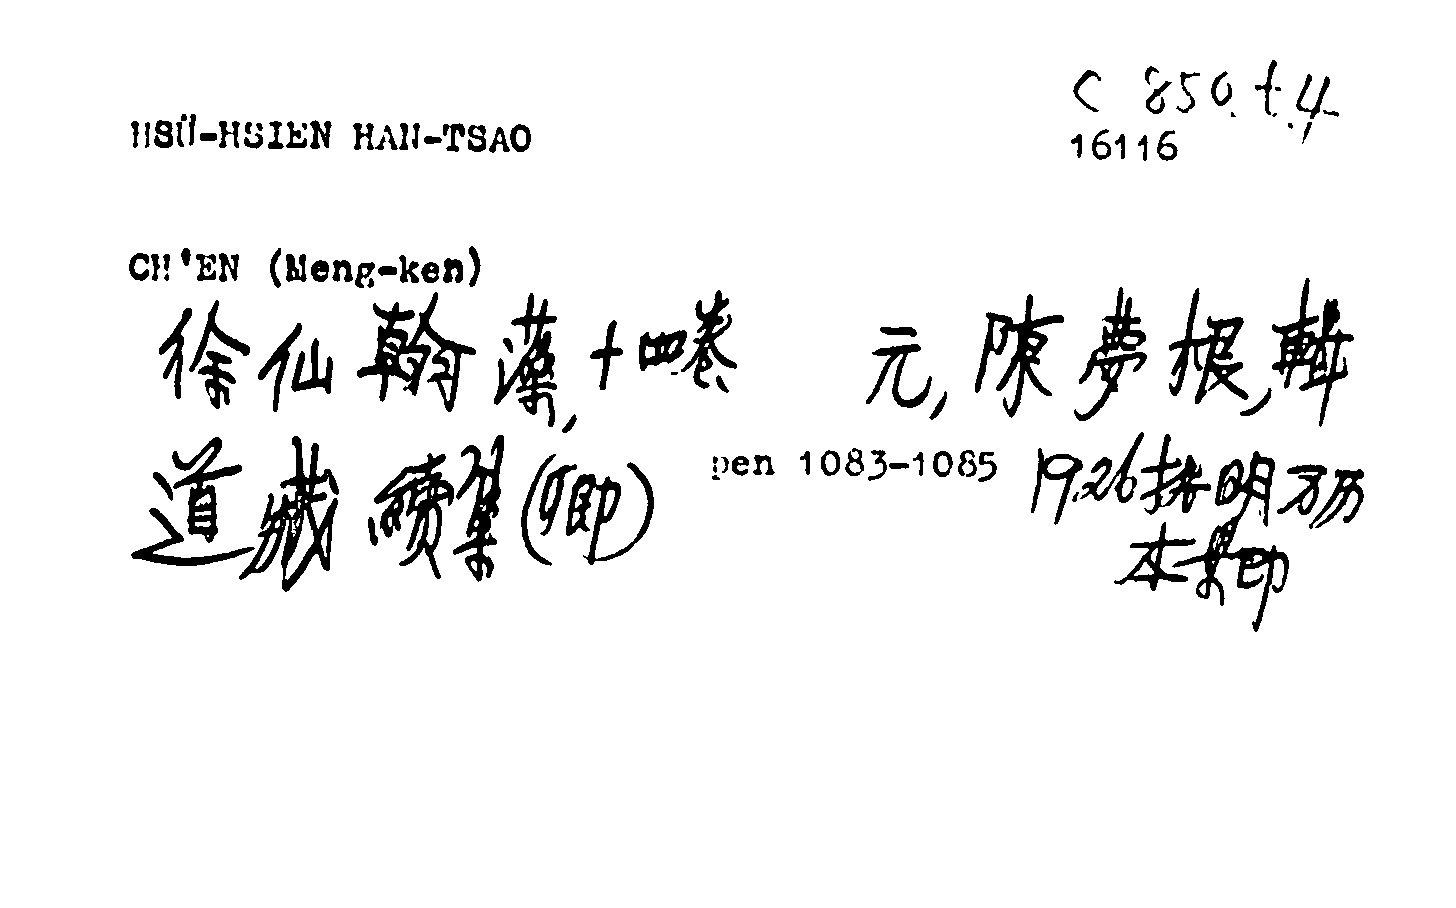 C 850.t.4
HSÜ-HSIEN HAN-TSAO
16116
CH'EN (Meng-ken)
徐仙翰藻,十四卷 元,陳夢根,輯
道藏續集(卿) pen 1083-1085 1926 據明万历
本景印